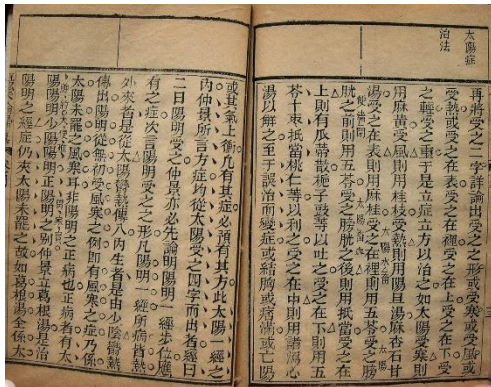 太陽症
治法
再將受之二字詳論出受之之形或受寒或受風或
受熱或受之在表或受之在裡受之在上受之在下受
之輕受之重于是立症立方以治之如太陽受寒則
用麻黃受風則用桂枝受熱則用陽旦湯麻杏石甘
湯將受之在表則用麻桂受之在裡則用五苓受之膀
胱之前則用五苓受之膀胱之後則用抵當受之在
上則有瓜蒂散梔子豉等以吐之受之在下則用五
苓十棗抵當桃仁等以利之受之在中則用諸瀉心
湯以解之至于誤治而變症或結胸或痞滿或亡陽
或其氣上衝凡有其症必預有其方此太陽一經之
內仲景所言方症均從太陽受之四字而出者經曰
二日陽明受之仲景亦必先論明陽明一經步位應
有之症次言陽明受之之形凡陽明一經所病皆熱
外來者是從太陽鬱熱傳入內生者是由少陰鬱熱
傳出陽明從無初受風寒之例即有風寒之症乃係
太陽未罷之風寒耳非陽明之正病也正病者有太
陽陽明少陽陽明正陽陽明之別仲景立葛根湯是治
陽明之經症仍夾太陽未罷之故如葛根湯全係太